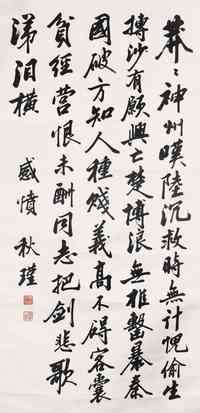 莽々神州嘆陸沉救時無計愧偷生
摶沙有願興亡楚博浪無椎擊暴秦
國破方知人種賤義高不碍客囊
貧經營恨未酬同志把劍悲歌
涕泪橫
感憤 秋瑾